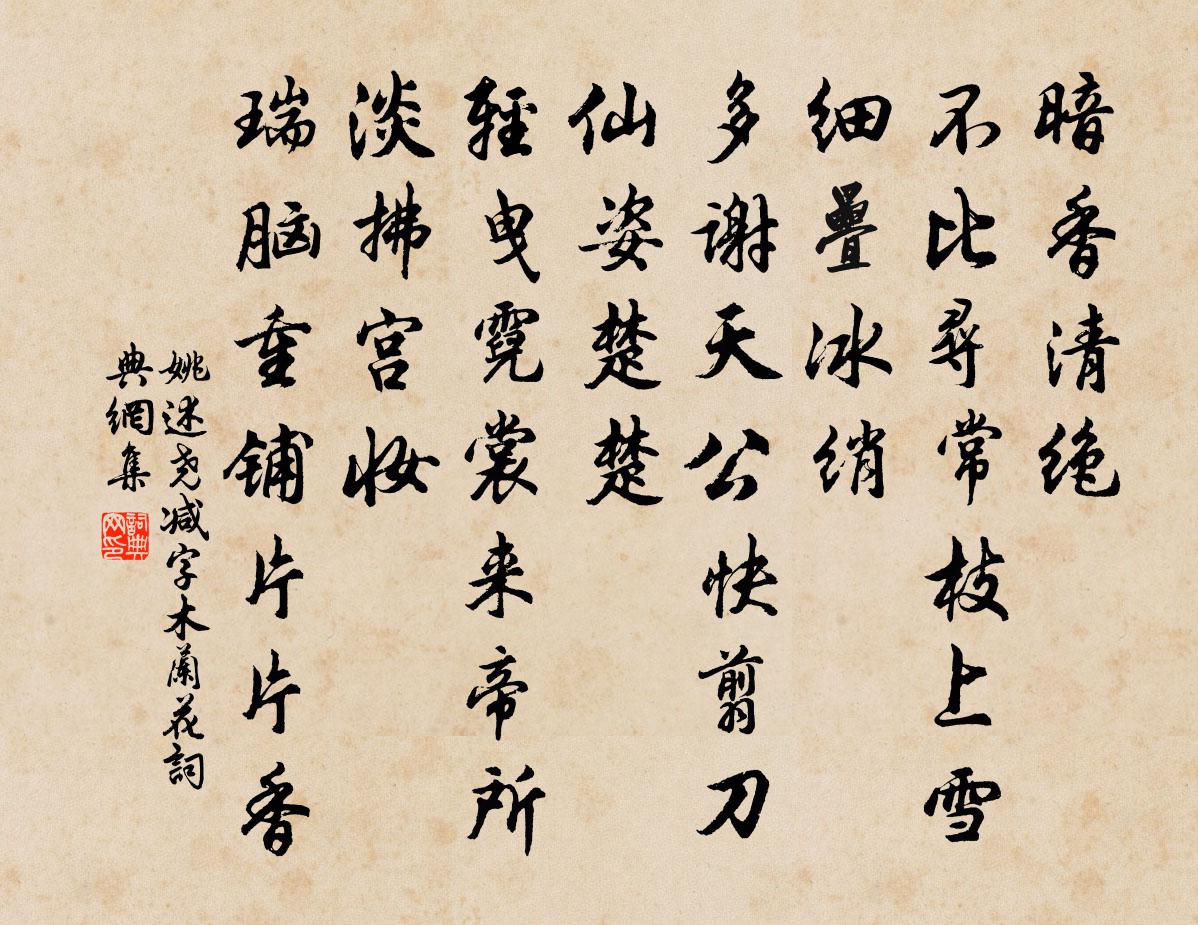 暗香清绝
不比尋常枝上雪
细疊冰绡
多谢天公快翦刀
仙姿楚楚
輕曳霓裳来帝所
淡拂宫妆
瑞脑重铺片片香
姚述尧减字木蘭花詞
典網集
詞典网印